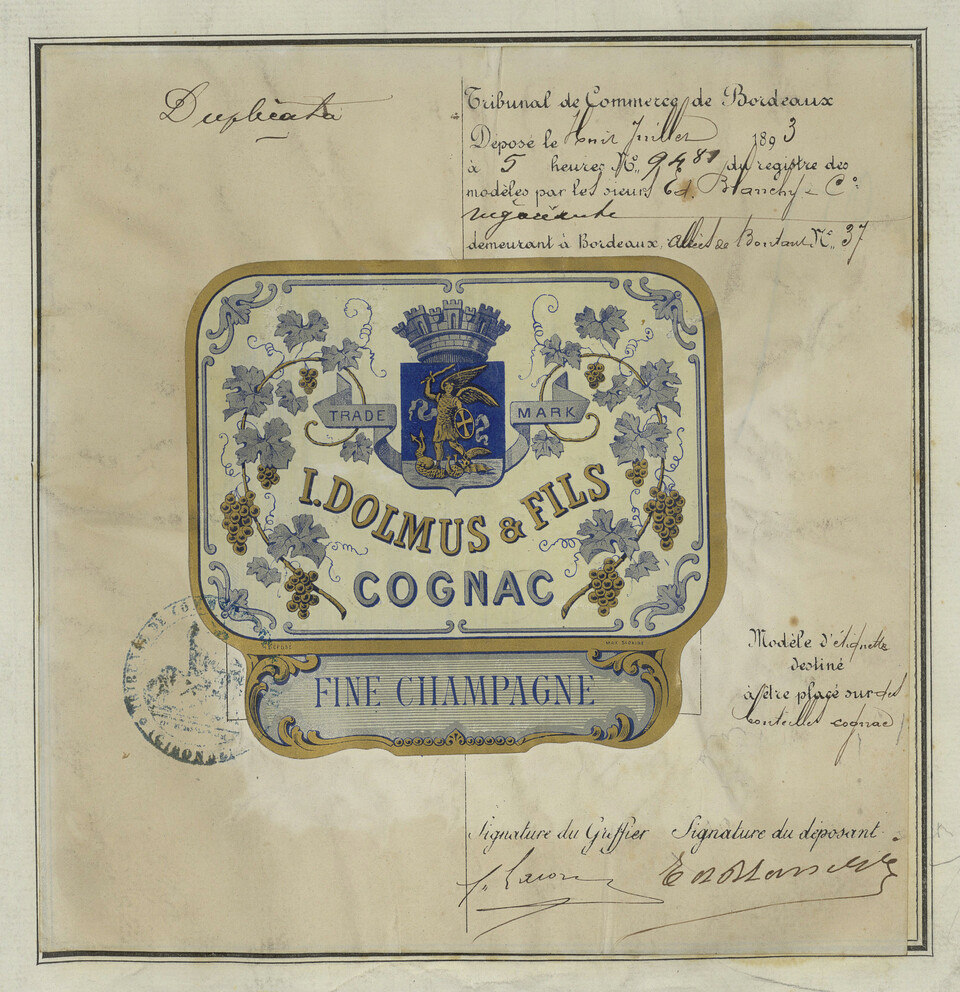 Duplicata
Tribunal de Commerce de Bordeaux
Déposé le huit Juillet 1893
à 5 heures N° 9481 du registre des
modèles par les sieurs Ed. Blanchy & Cº
négociants
demeurant à Bordeaux, allées de Boutaut N° 37
TRADE MARK
I. DOLMUS & FILS
COGNAC
FINE CHAMPAGNE
TRIBUNAL DE COMMERCE
(GIRONDE)
Modèle d'étiquette
destiné
à être placé sur des
bouteilles cognac
Signature du Greffier Signature du déposant